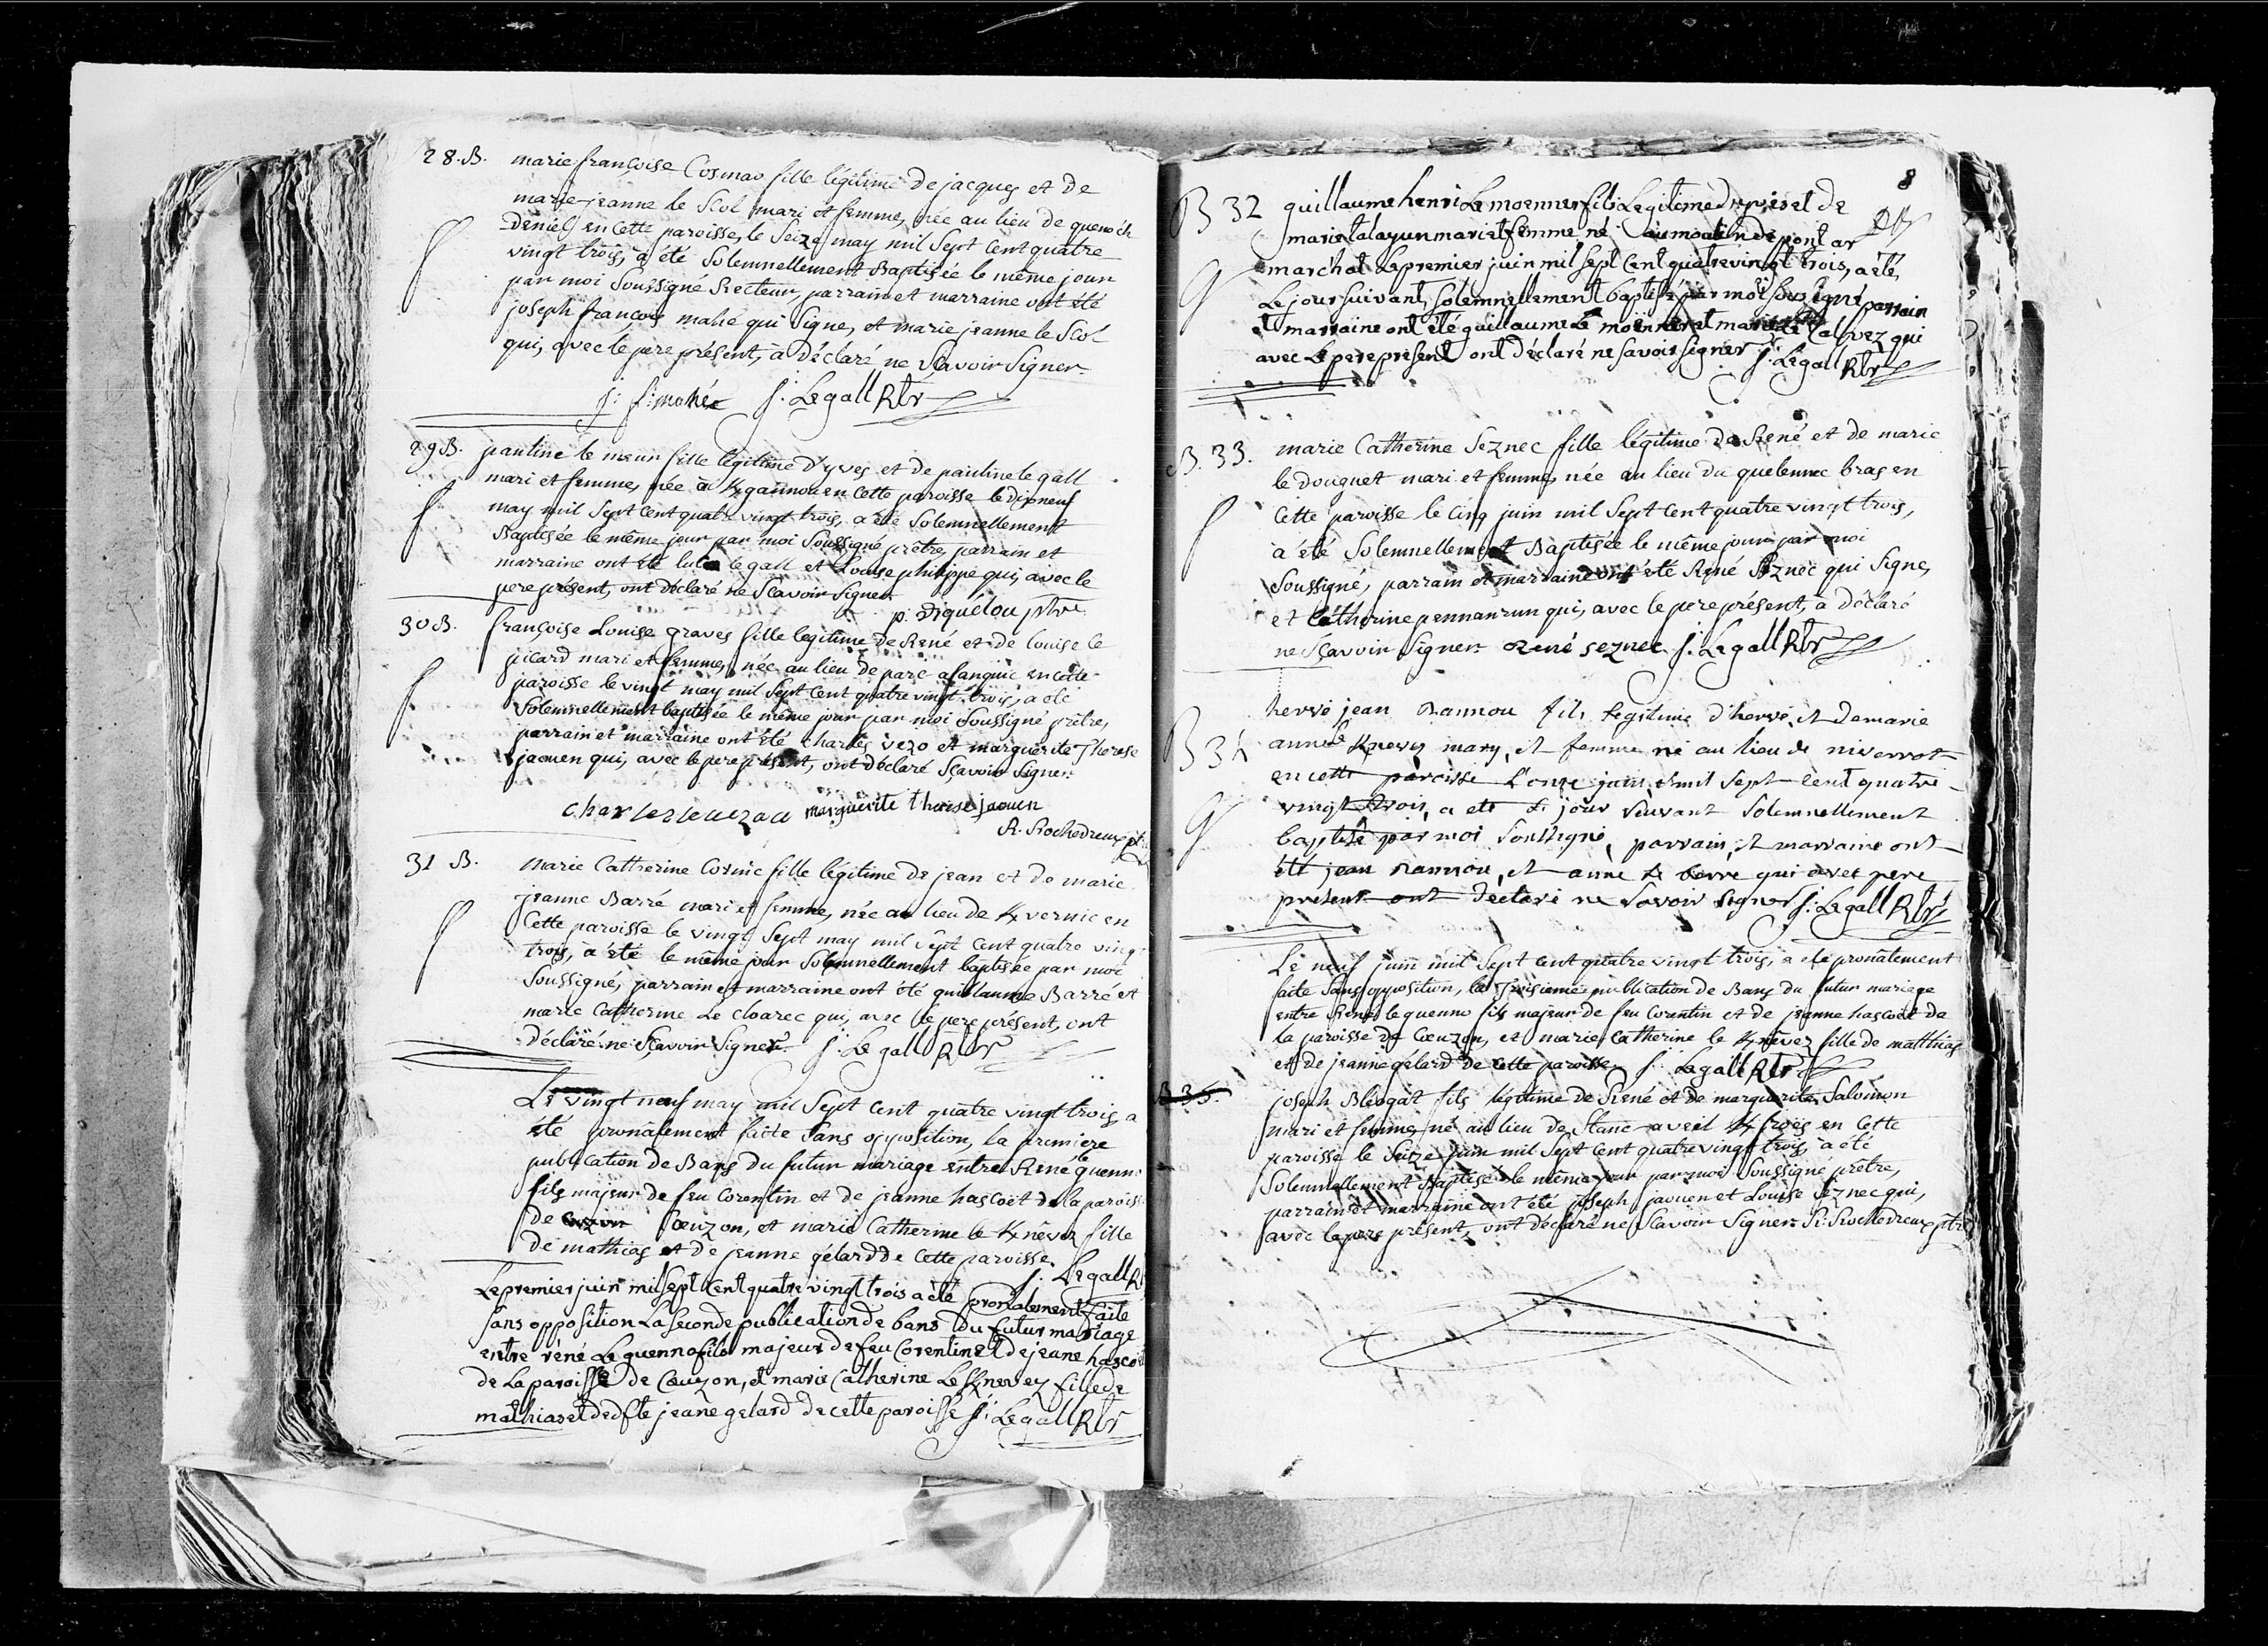 28. B. marie françoise Cosmao fille légitime de jacques et de
marie jeanne le Scol mari et femme, née au lieu de quenec'h
Deniel en cette paroisse, le Seize may mil Sept Cent quatre
vingt trois, à été Solemnellement Baptisée le même jour
par moi Soussigné Recteur, parrain et marraine ont été
joseph françois mahé qui Signe, et marie jeanne le Scol
qui, avec le pere présent, à Déclaré ne Sçavoir Signer.
j: f: mahé J: Le gall Rtr
29 B. pauline le meur fille légitime d'yves et de pauline le gall
mari et femme, née à Kgannou en Cette paroisse le dixneuf
may mil Sept Cent quatre vingt trois, a été Solemnellement
Baptisée le même jour par moi Soussigné prêtre, parrain et
marraine ont été le gall et Louise philippe qui, avec le
pere présent, ont déclaré ne Scavoir Signer
p. Diquélou ptre
30 B. françoise Louise graves fille legitime de René et de Louise le
picard mari et femme, née au lieu de parc alanquic en cette
paroisse le vingt may mil Sept Cent quatre vingt trois, a été
Solemnellement baptisée le même jour par moi Soussigné prêtre,
parrain et marraine ont été Charles vezo et marguerite Therese
jaouen qui, avec le pere présent, ont déclaré Sçavoir Signer.
Charles leuezou marguerite therese jaouen
R. Rochedreux pt
31 B. Marie Catherine Cosmic fille légitime de jean et de marie
jeanne Barré mari et femme, née au lieu de Kvernic en
Cette paroisse le vingt Sept may mil Sept Cent quatre ving
trois, à été le même jour Solemnellement baptisée par moi
Soussigné, parrain et marraine ont été guillaume Barré et
marie Catherine Le cloarec qui, avec le pere présent, ont
déclaré ne Sçavoir Signer. J: Le gall Rtr
Le vingt neuf may mil Sept Cent quatre vingt trois, a
été pronalement faite Sans opposition, la premiere
publication de Bans du futur mariage entre René le guenno
fils majeur de feu Corentin et de jeanne hascoet de la paroiss
de Cœuzon, et marie Catherine le Knévez fille
de mathias et de jeanne gélard de Cette paroisse.
J: Le gall R
Le premier juin mil sept Cent quatre vingt trois a été pronalement faite
sans opposition La seconde publication de bans du futur mariage
entre réné Le guenno fils majeur de feu Corentin et de jeane hasco
de La paroisse de Cœuzon, et marie Catherine Le Knevez fille de
mathias et de jeane gelard de cette paroisse J: Le gall Rtr
8
B 32 guillaume henri Le moenner fils Legitime d'yves et de
marie talayun mari et femme né au moulin de pont ar
marc'hat Le premier juin mil sept Cent quatre vingt trois, a été,
Le jour suivant, solemnellement baptisé par moi soussigné parrain
et marraine ont été guillaume Le moenner et marie Le Calvez qui
avec Le pere présent ont déclaré ne savoir signer J: Le gall Rtr
B. 33. marie Catherine Seznec fille légitime de René et de marie
le douguet mari et femme, née au lieu du quelennec bras en
Cette paroisse le Cinq juin mil Sept Cent quatre vingt trois,
à été Solemnellement Baptisée le même jour par moi
Soussigné, parrain et marraine ont été René Seznec qui Signe,
et Catherine pennanrun qui, avec le pere présent, à Déclaré
ne Sçavoir Signer René seznec J: Le gall Rtr
B 34 hervé jean Nannou fils legitime d'hervé, et de marie
anne le Knevez mary, et femme né au lieu de niverrot
en cette paroisse L'onze juin mil Sept Cent quatre
vingt trois, a eté le jour Suivant Solemnellement
baptisé par moi Soussigné, parrain, et marraine ont
été jean Nannou, et anne le berre qui avec pere
présent ont déclaré ne Savoir Signer J: Le gall Rtr
Le neuf juin mil Sept Cent quatre vingt trois, a été pronâlement
faite Sans opposition, la troisieme publication de Bans du futur mariage
entre René le guenno fils majeur de feu Corentin et de jeanne hascoet de
la paroisse de Cœuzon, et marie Catherine le Knévez fille de matthias
et de jeanne gélard de Cette paroisse. J: Le gall Rtr
B 35. joseph Bleogat fils légitime de René et de marguerite Salomon
mari et femme, né au lieu de Stanc aveil Kfroës en Cette
paroisse le Seize juin mil Sept Cent quatre vingt trois, a été
Solemnellement Baptisé le même jour par moi Soussigné prêtre,
parrain et marraine ont été joseph jaouen et Louise Seznec qui,
avec le pere présent, ont déclaré ne Scavoir Signer R. Rochedreux ptre